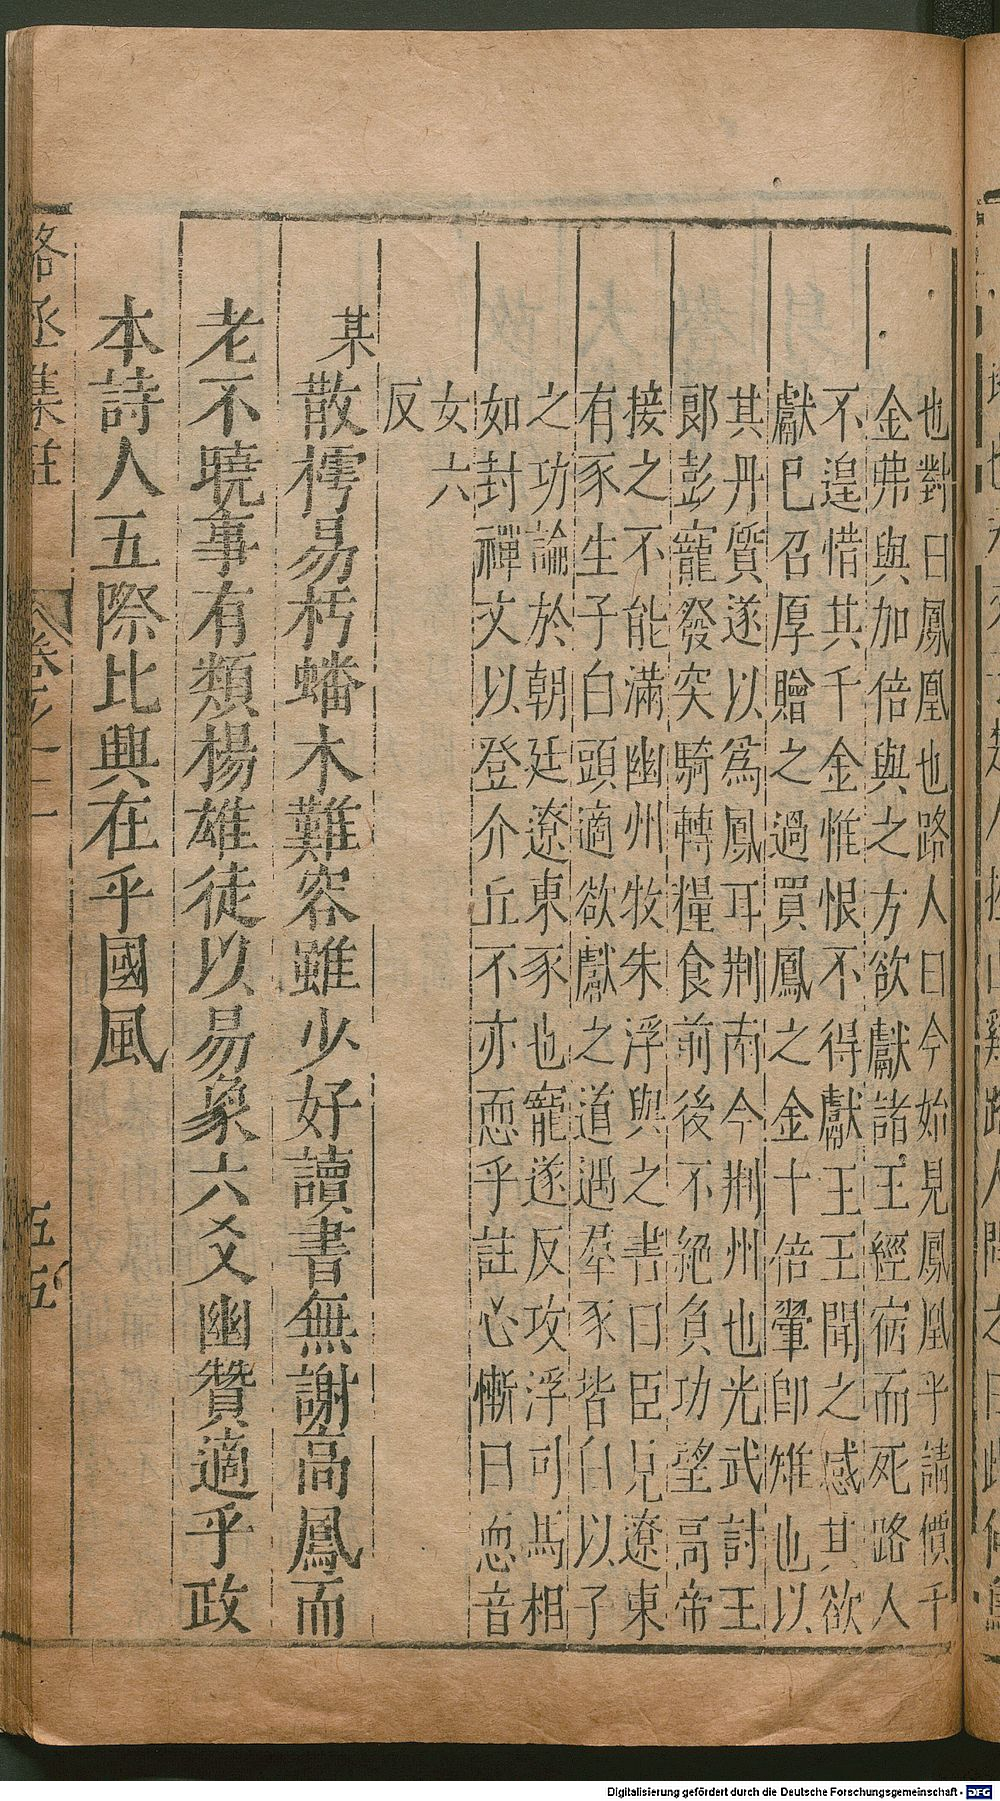 也對曰鳳凰也路人曰今始見鳳凰乎請價千
金弗與加倍與之方欲獻諸王經宿而死路人
不遑惜其千金惟恨不得獻王王聞之感其欲
獻已召厚贈之過買鳳之金十倍翬卽雉也以
其丹質遂以爲鳳耳荆南今荆州也光武討王
郎彭寵發突騎轉糧食前後不絕負功望高帝
接之不能滿幽州牧朱浮與之書曰臣見遼東
有豕生子白頭適欲獻之道遇羣豕皆白以子
之功論於朝廷遼東豕也寵遂反攻浮司馬相
如封禪文以登介丘不亦恧乎註心慚曰恧音
女六
反
某
散樗易朽蟠木難容雖少好讀書無謝高鳳而
老不曉事有類楊雄徒以易象六爻幽贊適乎政
本詩人五際比興在乎國風
駱丞集註
卷之二
五五
Digitalisierung gefördert durch die Deutsche Forschungsgemeinschaft - DFG